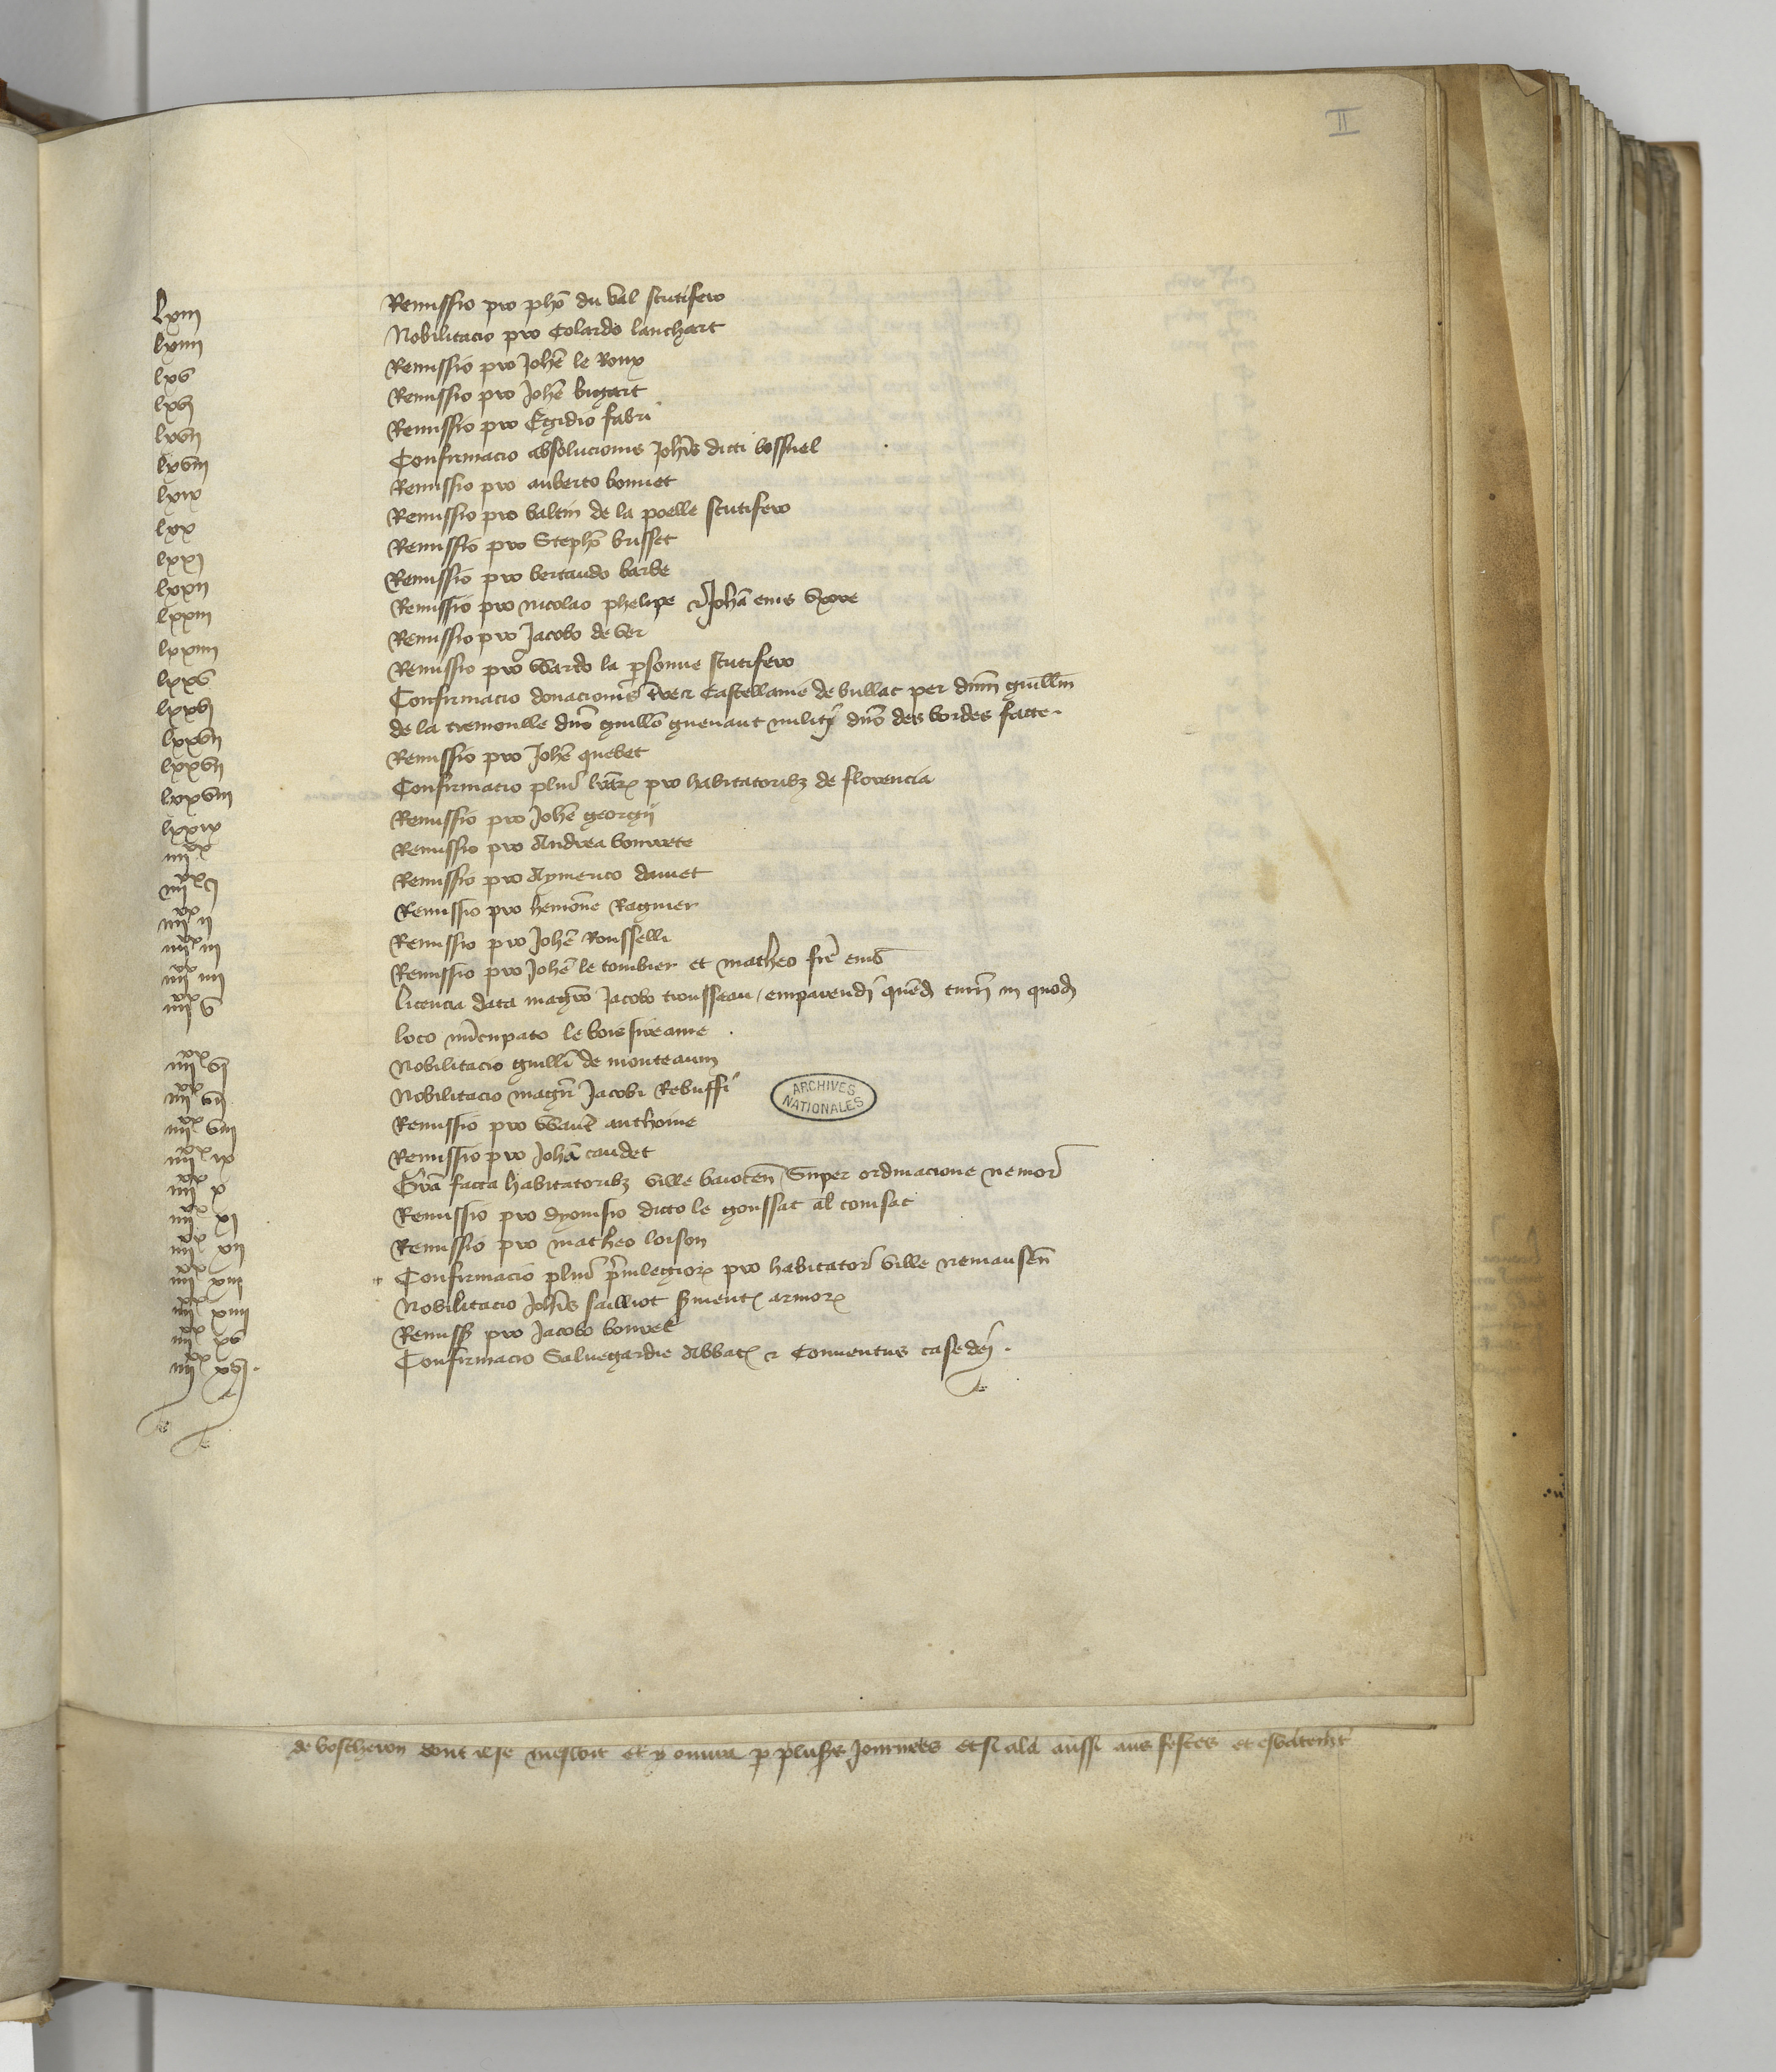 II
lxiii Remissio pro pho du val scutifero
lxiiii Nobilitacio pro Colardo lanchart
lxv Remissio pro Johe le Roux
lxvj Remissio pro Johe bigart
lxvii Remissio pro Egidio fabri
lxviii Confirmacio absolucionis Johis dicti bossuel
lxix Remissio pro auberto bonnet
lxx Remissio pro valtin de la poelle scutifero
lxxj Remissio pro Stepho brisset
lxxii Remissio pro bertaudo barbe
lxxiii Remissio pro nicolao phelipe & Joha eius uxore
lxxiiii Remissio pro Jacobo de ver
lxxv Remissio pro Wardo la psonne scutifero
lxxvj Confirmacio donacionis tre & Castellanie de bullat per dnm guillm
de la tremoulle dno guillo guenaut militi dno des bordes facte
lxxvii Remissio pro Johe quebet
lxxvii Confirmacio plui lrar pro habitatoribz de florencia
lxxviii Remissio pro Johe georgij
lxxix Remissio pro Andrea bonnete
iiii xx Remissio pro Aymerico danet
iiii xx j Remissio pro hemone Raguier
iiii xx ii Remissio pro Johe Rousselli
iiii xx iii Remissio pro Johe le tombier et matheo fre eius
iiii xx iiii licencia data magro Jacobo trousseau / emparendi quedam turri in quod
iiii xx v loco nucupato le bois sireame
iiii xx vj Nobilitacio guilli de monteaum
iiii xx vii Nobilitacio magri Jacobi Rebuffi
ARCHIVES NATIONALES
iiii xx viii Remissio pro anthoine
iiii xx ix Remissio pro Joha caudet
iiii xx x Gra facta habitatoribz ville baiocen super ordinacione nemor
iiii xx xi Remissio pro dyonisio dicto le goussat al comsat
iiii xx xii Remissio pro matheo loison
iiii xx xiii + Confirmacio plui pruilegior pro habitator ville nemausen
iiii xx xiiii Nobilitacio Johis sailliot armor
iiii xx xv Remiss pro Jacobo bonnet
iiii xx xvj Confirmacio Saluegardie Abbat & Conuentus case dei
de boscheron dont il se mesloit et y ouura p plusrs Journees et si ala aussi aus festes et esbatemt